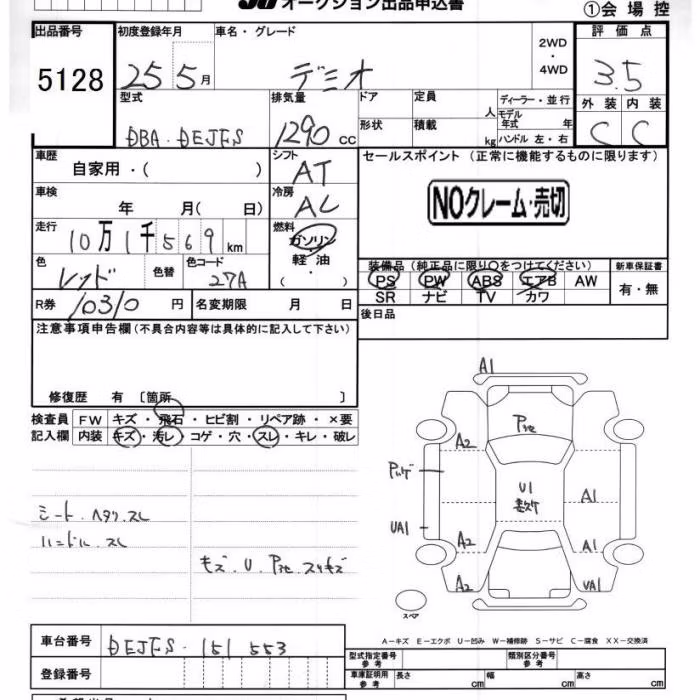 オークション出品申込書
①会場控
出品番号 初度登録年月 車名・グレード 評価点
5128 25 5月 デミオ 2WD・4WD 3.5
型式 排気量 ドア 定員 人 ディーラー・並行 外装 内装
DBA・DEJFS 1290cc 形状 積載 kg モデル年式 年 ハンドル 左・右 C C
車歴 自家用・( ) シフト AT セールスポイント(正常に機能するものに限ります)
車検 年 月( 日) 冷房 AC NOクレーム・売切
走行 10万1千569km 燃料 ガソリン・軽油・( )
色 レッド 色替 色コード 27A 装備品(純正品に限り○をつけてください) 新車保証書
PS PW ABS エアB AW 有・無
SR ナビ TV カワ
R券 10310円 名変期限 月 日 後日品
注意事項申告欄(不具合内容等は具体的に記入して下さい)
修復歴 有 〔箇所 〕
検査員 FW キズ・飛石・ヒビ割・リペア跡・×要
記入欄 内装 キズ・汚レ・コゲ・穴・スレ・キレ・破レ
A1
A2
U1
A1
UA1
A1
A2
A2
UA1
シート ヘタリ スレ
ハンドル スレ
キズ U
スペア
A-キズ E-エクボ U-凹み W-補修跡 S-サビ C-腐食 XX-交換済
車台番号 DEJFS-151553
型式指定番号 参考 類別区分番号 参考
登録番号 車庫証明用 参考 長さ cm 幅 cm 高さ cm